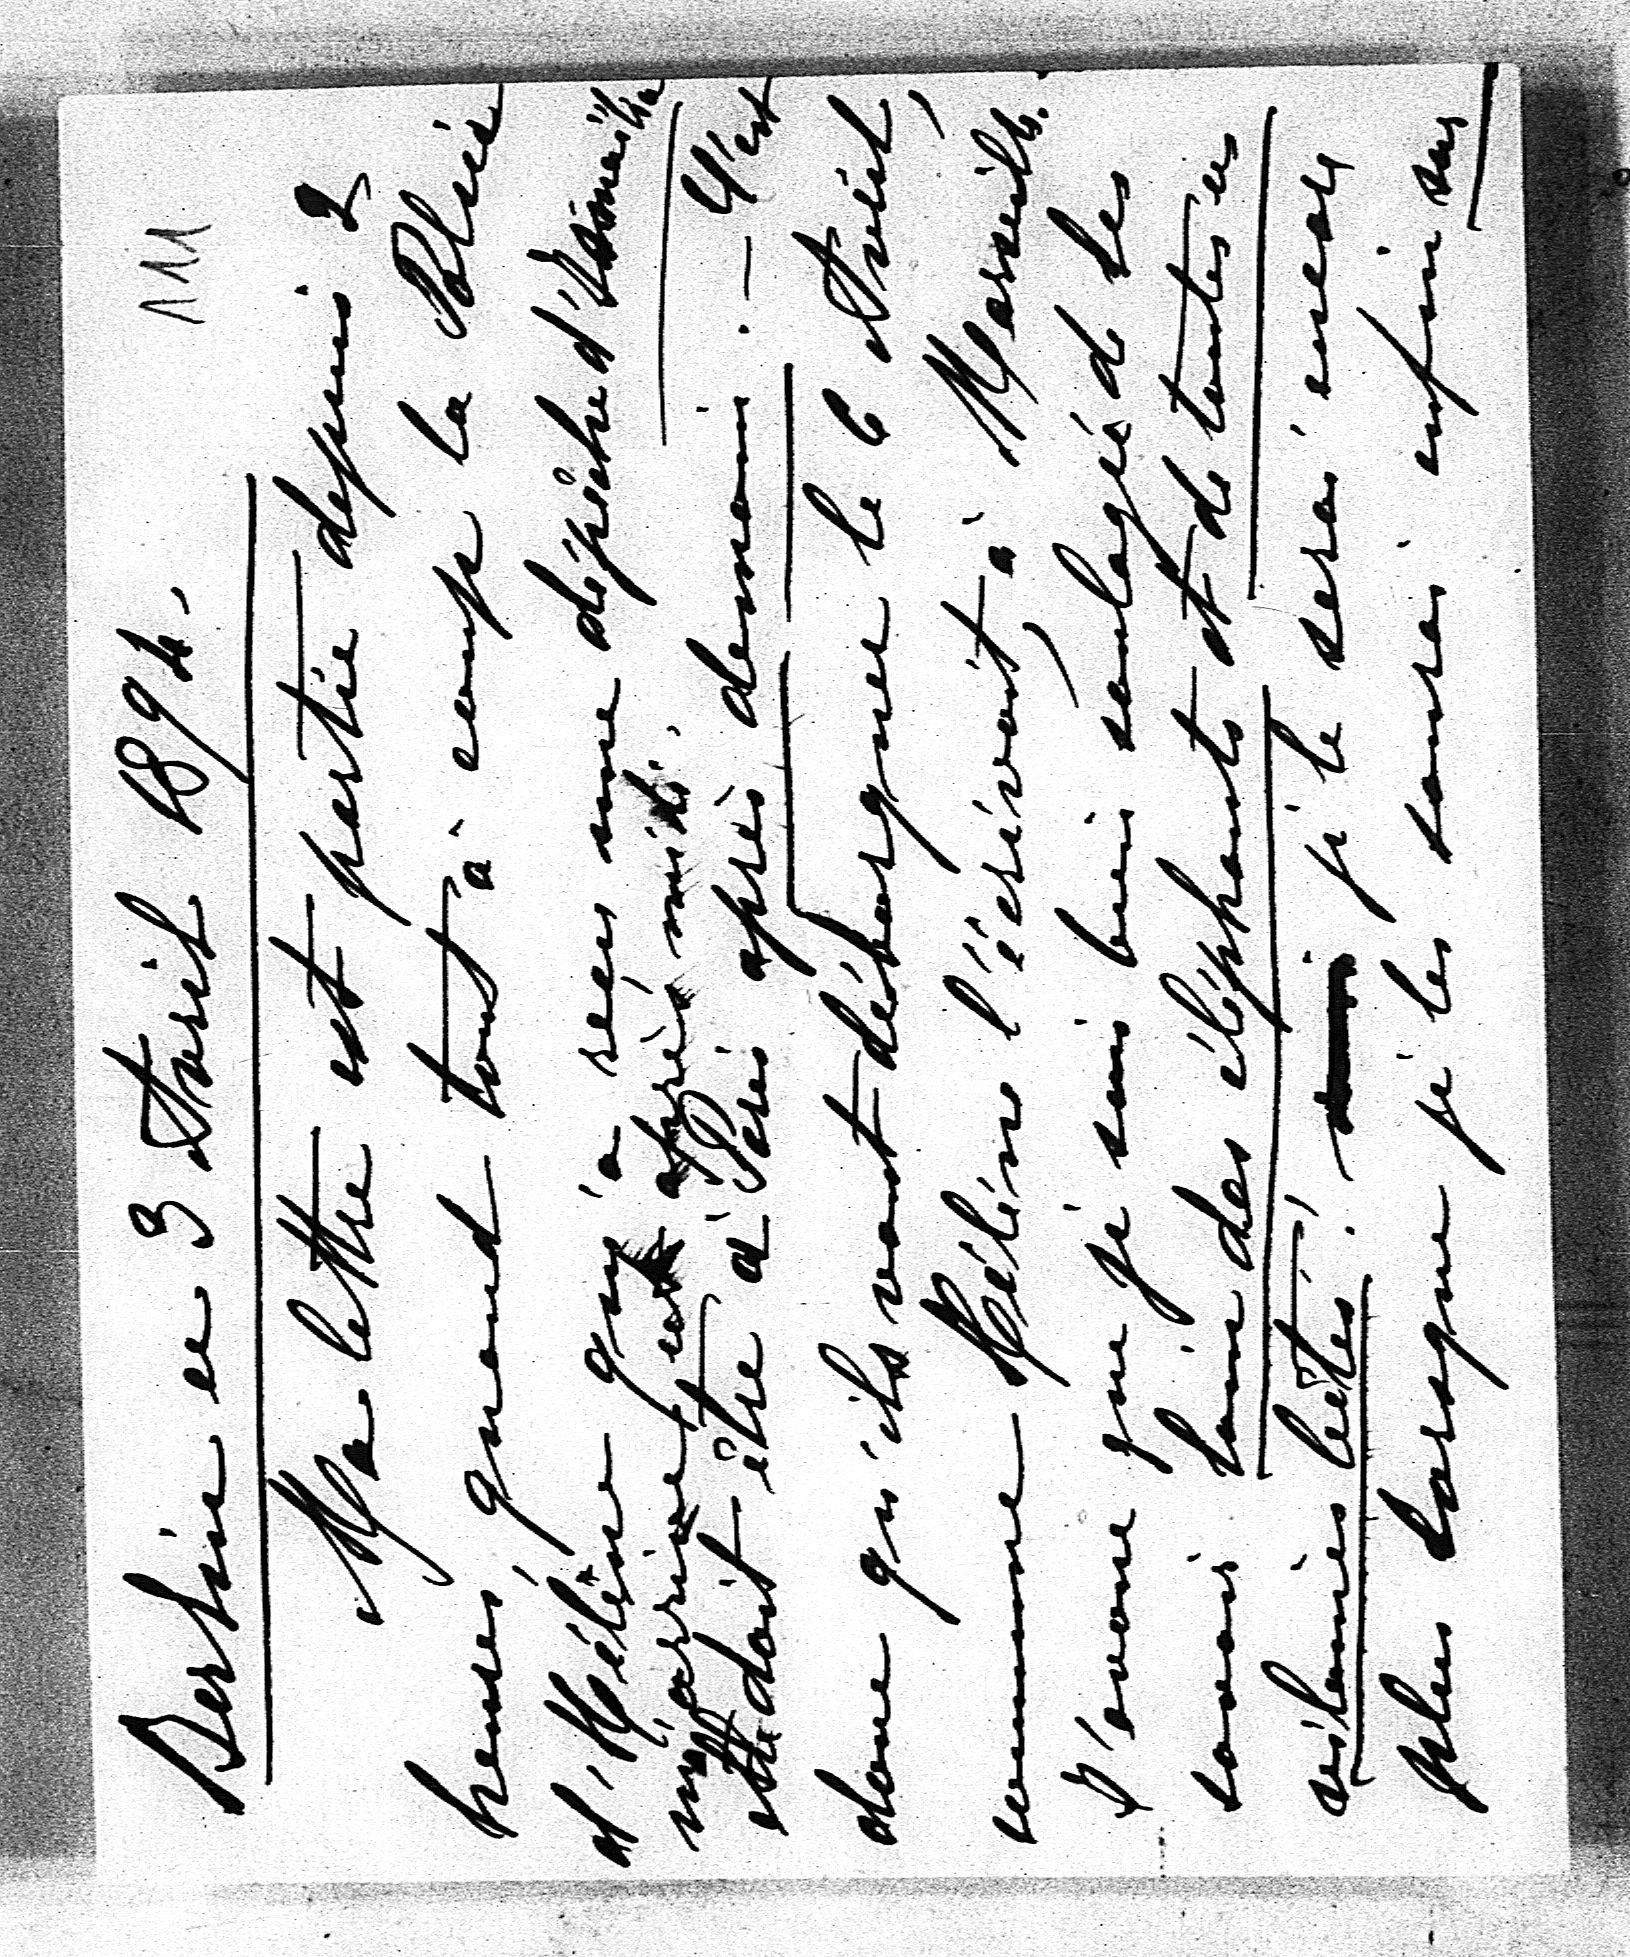 111
Berlin ce 3 Avril 1894.
Ma lettre est partie depuis 2
heures, quand tout à coup la Police
d'Hélène qui a reçu une dépêche d'Ismaïlia
m'arrive cet après midi.
elle doit être à Paris après demain. — C'est
donc qu'ils vont débarquer le 6 Avril,
comme Hélène l'écrivait à Marseille.
J'avoue que je suis bien soulagée de les
savoir loin des éléphants et de toutes ces
vilaines bêtes! je le serai encore
plus lorsque je les saurai enfin sur